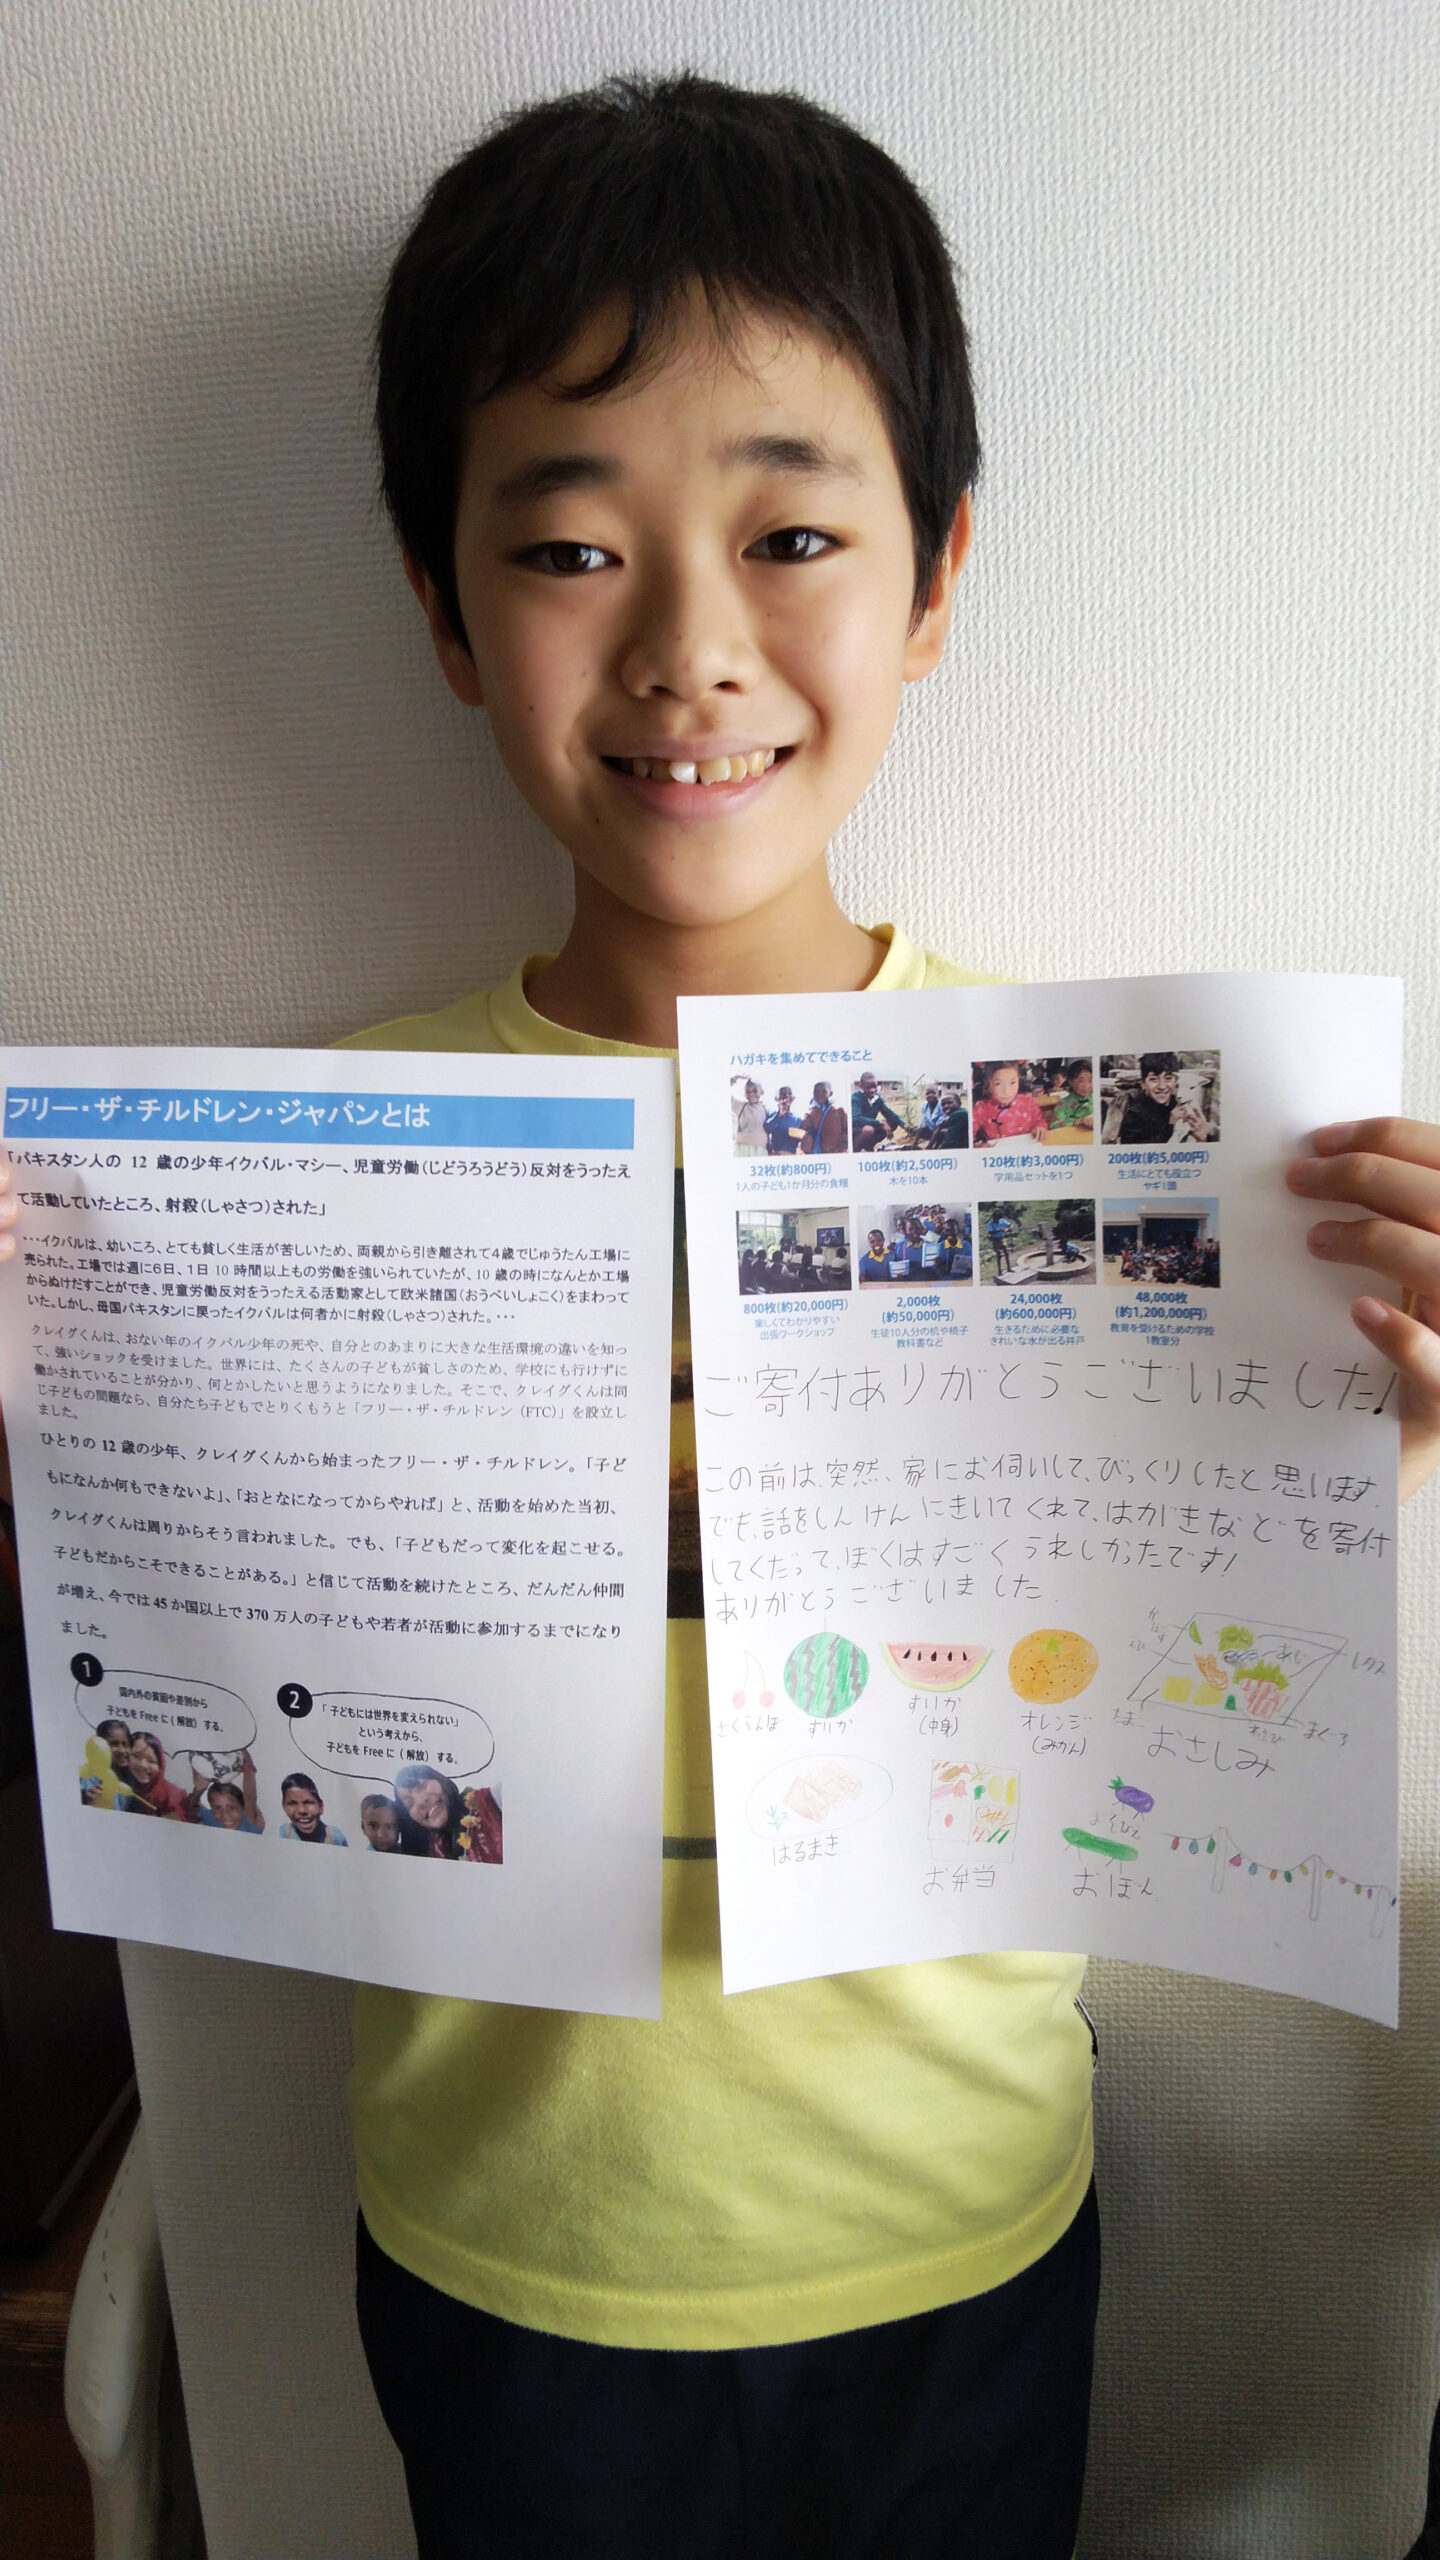 フリー・ザ・チルドレン・ジャパンとは
「パキスタン人の 12 歳の少年イクバル・マシー、児童労働(じどうろうどう)反対をうったえ
て活動していたところ、射殺(しゃさつ)された」
…イクバルは、幼いころ、とても貧しく生活が苦しいため、両親から引き離されて4歳でじゅうたん工場に
売られた。工場では週に6日、1日 10 時間以上もの労働を強いられていたが、10 歳の時になんとか工場
からぬけだすことができ、児童労働反対をうったえる活動家として欧米諸国(おうべいしょこく)をまわって
いた。しかし、母国パキスタンに戻ったイクバルは何者かに射殺(しゃさつ)された。…
クレイグくんは、おない年のイクバル少年の死や、自分とのあまりに大きな生活環境の違いを知っ
て、強いショックを受けました。世界には、たくさんの子どもが貧しさのため、学校にも行けずに
働かされていることが分かり、何とかしたいと思うようになりました。そこで、クレイグくんは同
じ子どもの問題なら、自分たち子どもでとりくもうと「フリー・ザ・チルドレン(FTC)」を設立し
ました。
ひとりの 12 歳の少年、クレイグくんから始まったフリー・ザ・チルドレン。「子ど
もになんか何もできないよ」、「おとなになってからやれば」と、活動を始めた当初、
クレイグくんは周りからそう言われました。でも、「子どもだって変化を起こせる。
子どもだからこそできることがある。」と信じて活動を続けたところ、だんだん仲間
が増え、今では 45 か国以上で 370 万人の子どもや若者が活動に参加するまでになり
ました。
1
国内外の貧困や差別から
子どもを Free に(解放)する。
2
「子どもには世界を変えられない」
という考えから、
子どもを Free に(解放)する。
ハガキを集めてできること
32枚(約800円)
1人の子ども1か月分の食糧
100枚(約2,500円)
木を10本
120枚(約3,000円)
学用品セットを1つ
200枚(約5,000円)
生活にとても役立つ
ヤギ1頭
800枚(約20,000円)
楽しくてわかりやすい
出張ワークショップ
2,000枚
(約50,000円)
生徒10人分の机や椅子
教科書など
24,000枚
(約600,000円)
生きるために必要な
きれいな水が出る井戸
48,000枚
(約1,200,000円)
教育を受けるための学校
1教室分
ご寄付ありがとうございました!
この前は、突然、家にお伺いして、びっくりしたと思います。
でも、話をしんけんにきいてくれて、はがきなどを寄付
してくだって、ぼくはすごくうれしかったです!
ありがとうございました。
さくらんぼ
すいか
すいか
(中身)
オレンジ
(みかん)
えび
あじ
レタス
たまご
わさび
まぐろ
おさしみ
はるまき
お弁当
おぼん